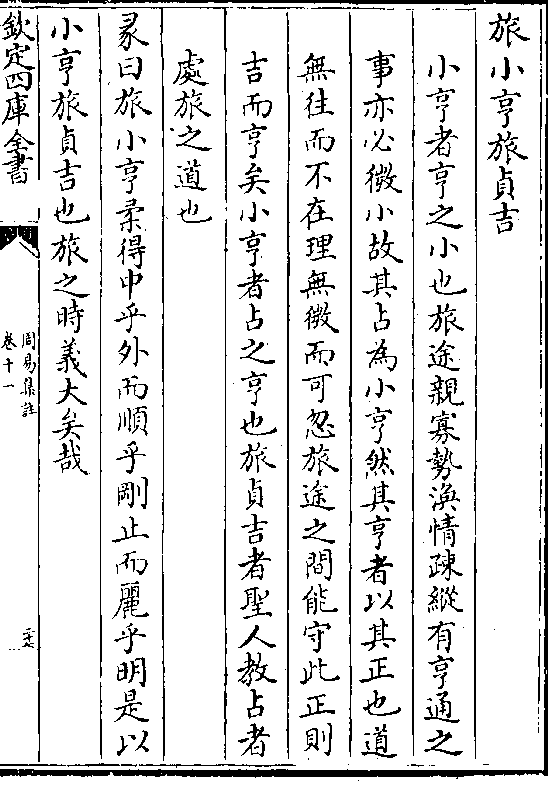 旅小亨旅貞吉
小亨者亨之小也旅途親寡勢渙情疎縱有亨通之
事亦必微小故其占為小亨然其亨者以其正也道
無往而不在理無微而可忽旅途之間能守此正則
吉而亨矣小亨者占之亨也旅貞吉者聖人教占者
處旅之道也
彖曰旅小亨柔得中乎外而順乎剛止而麗乎明是以
小亨旅貞吉也旅之時義大矣哉
欽定四庫全書
周易集註
卷十一